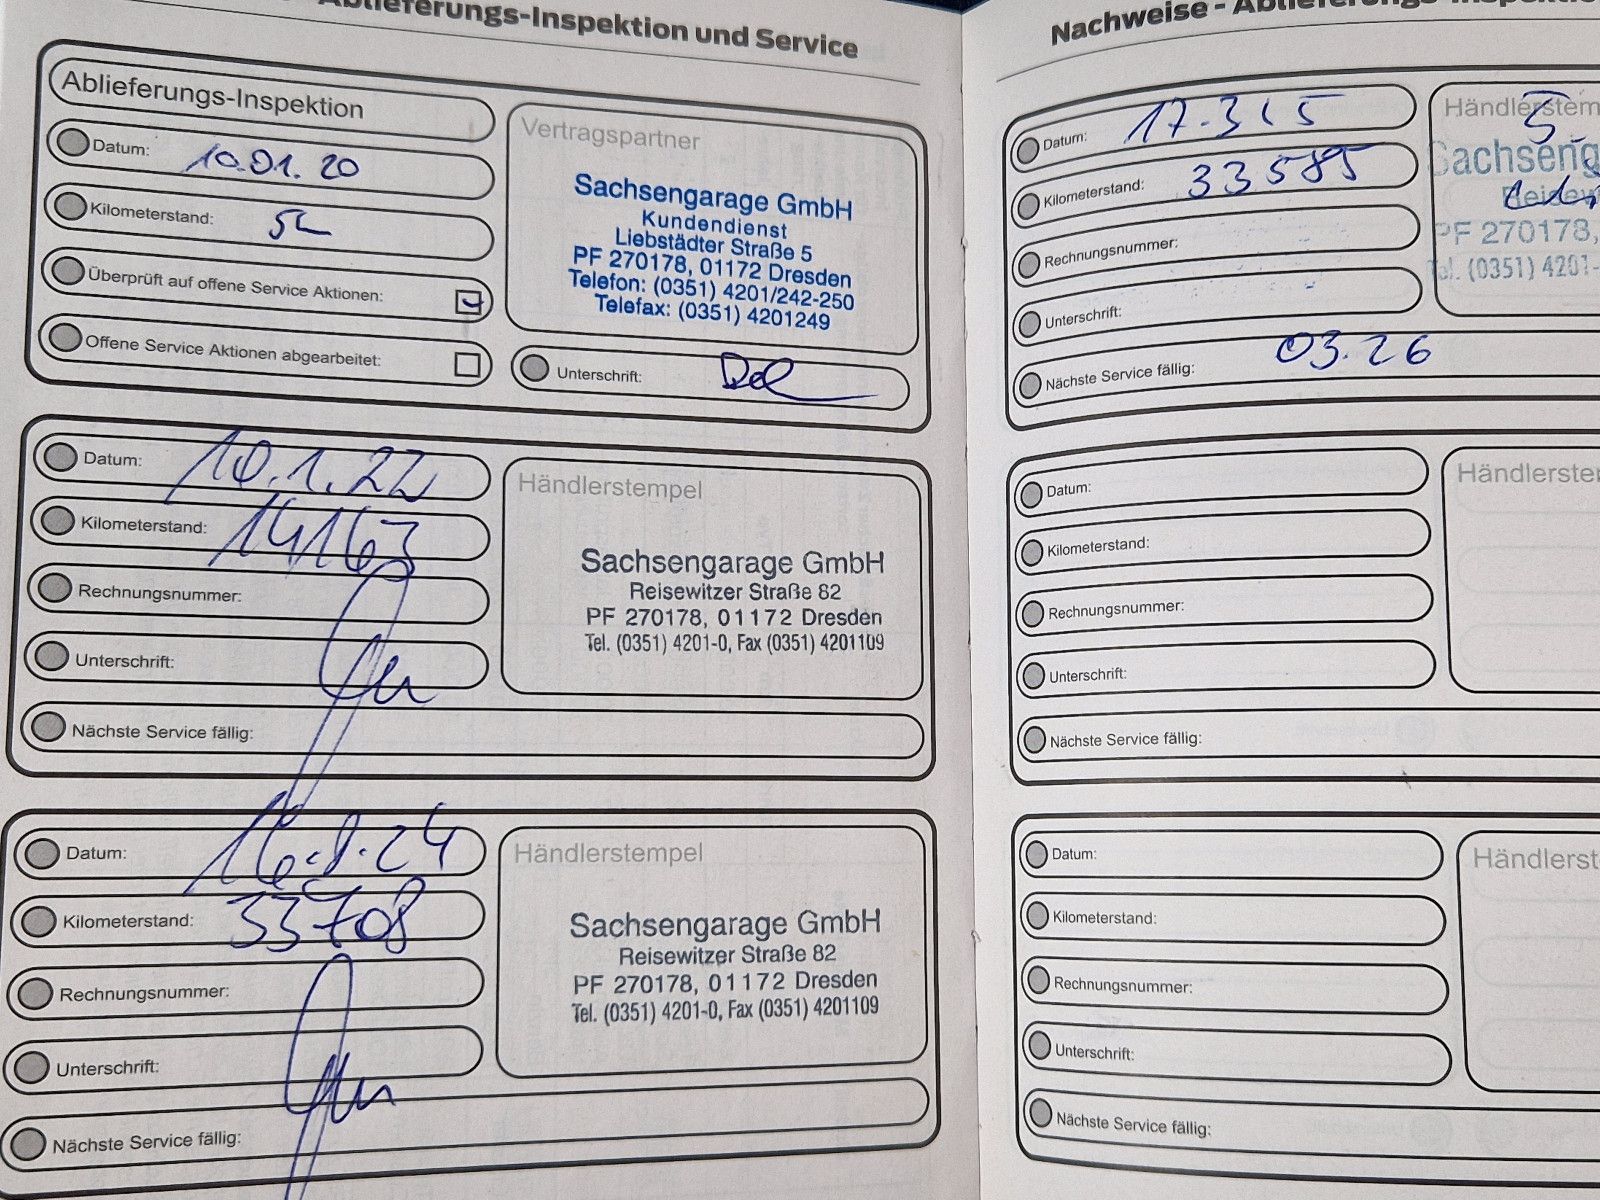 Ablieferungs-Inspektion und Service
Ablieferungs-Inspektion
Datum: 10.01.20
Kilometerstand:
Überprüft auf offene Service Aktionen:
Offene Service Aktionen abgearbeitet:
Vertragspartner
Sachsengarage GmbH
Kundendienst
Liebstädter Straße 5
PF 270178, 01172 Dresden
Telefon: (0351) 4201/242-250
Telefax: (0351) 4201249
Unterschrift:
Datum: 10.1.22
Kilometerstand: 14163
Rechnungsnummer:
Unterschrift:
Nächste Service fällig:
Händlerstempel
Sachsengarage GmbH
Reisewitzer Straße 82
PF 270178, 01172 Dresden
Tel. (0351) 4201-0, Fax (0351) 4201109
Datum:
Kilometerstand: 33708
Rechnungsnummer:
Unterschrift:
Nächste Service fällig:
Händlerstempel
Sachsengarage GmbH
Reisewitzer Straße 82
PF 270178, 01172 Dresden
Tel. (0351) 4201-0, Fax (0351) 4201109
Nachweise - Ablieferungs-Inspektion
Datum:
Kilometerstand: 33585
Rechnungsnummer:
Unterschrift:
Nächste Service fällig: 03.26
Händlerstem
Sachseng
PF 270178,
Tel. (0351) 4201-
Datum:
Kilometerstand:
Rechnungsnummer:
Unterschrift:
Nächste Service fällig:
Händlerste
Datum:
Kilometerstand:
Rechnungsnummer:
Unterschrift:
Nächste Service fällig:
Händlerst